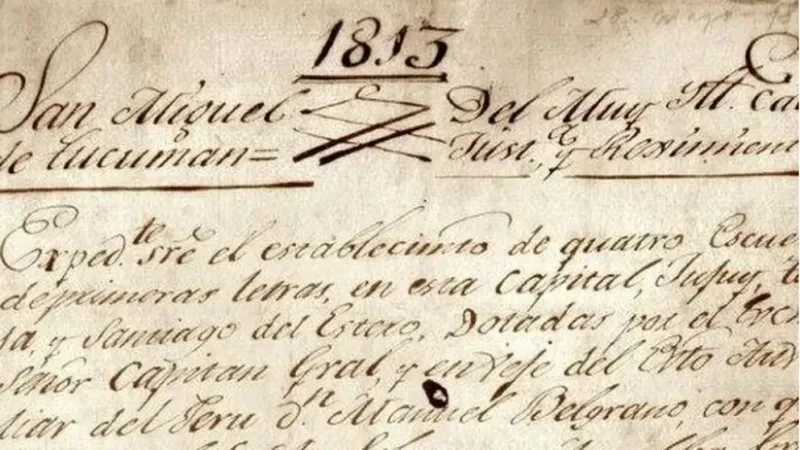 1813
San Miguel Del Muy Ill. Ca
de Tucuman= Just.ª y Reximient
Exped.te sre el establecimto de quatro Escue
deprimeras letras, en esta Capital, Jujuy, t
ja, y Santiago del Estero, Dotadas por el Exc
Señor Capitan Gral, y en Xefe del Exto Auxi
liar del Peru Dn Manuel Belgrano, con q